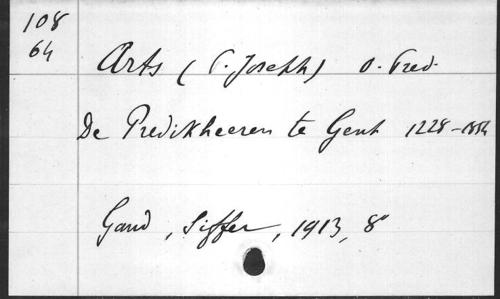 108
64
Arts (P. Joseph) O. Pred.
De Predikheeren te Gent 1228-1854
Gand, Siffer, 1913, 8°